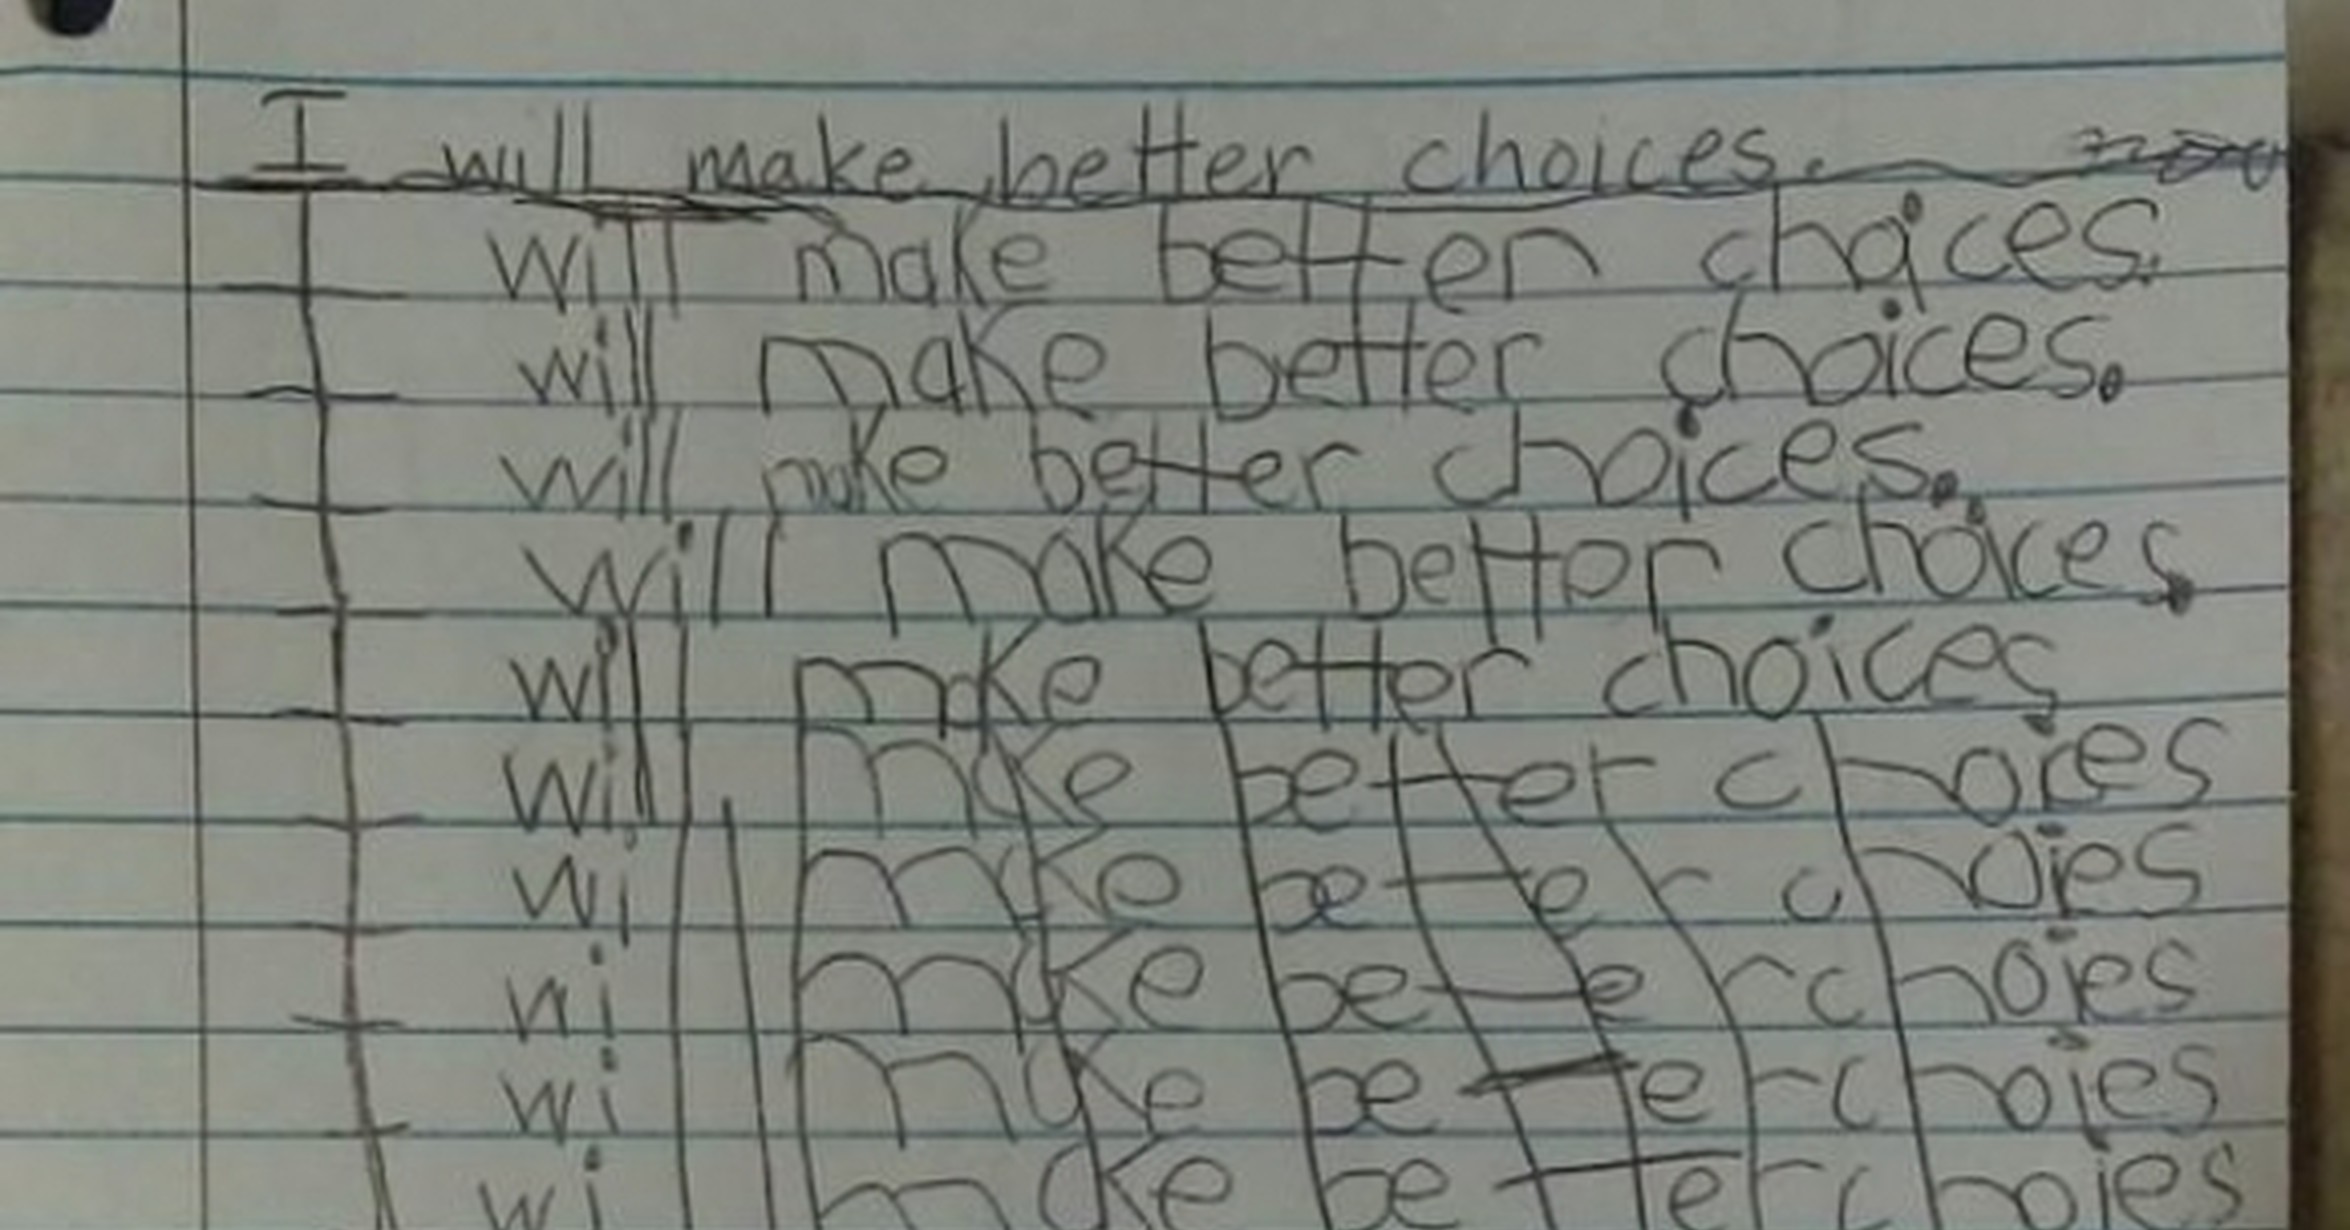 I will make better choices.
I will make better choices.
I will make better choices.
I will make better choices.
I will make better choices.
I will make better choices
I will make better choices
I will make better choies
I will make better choies
I will make better choies
I will make better choies